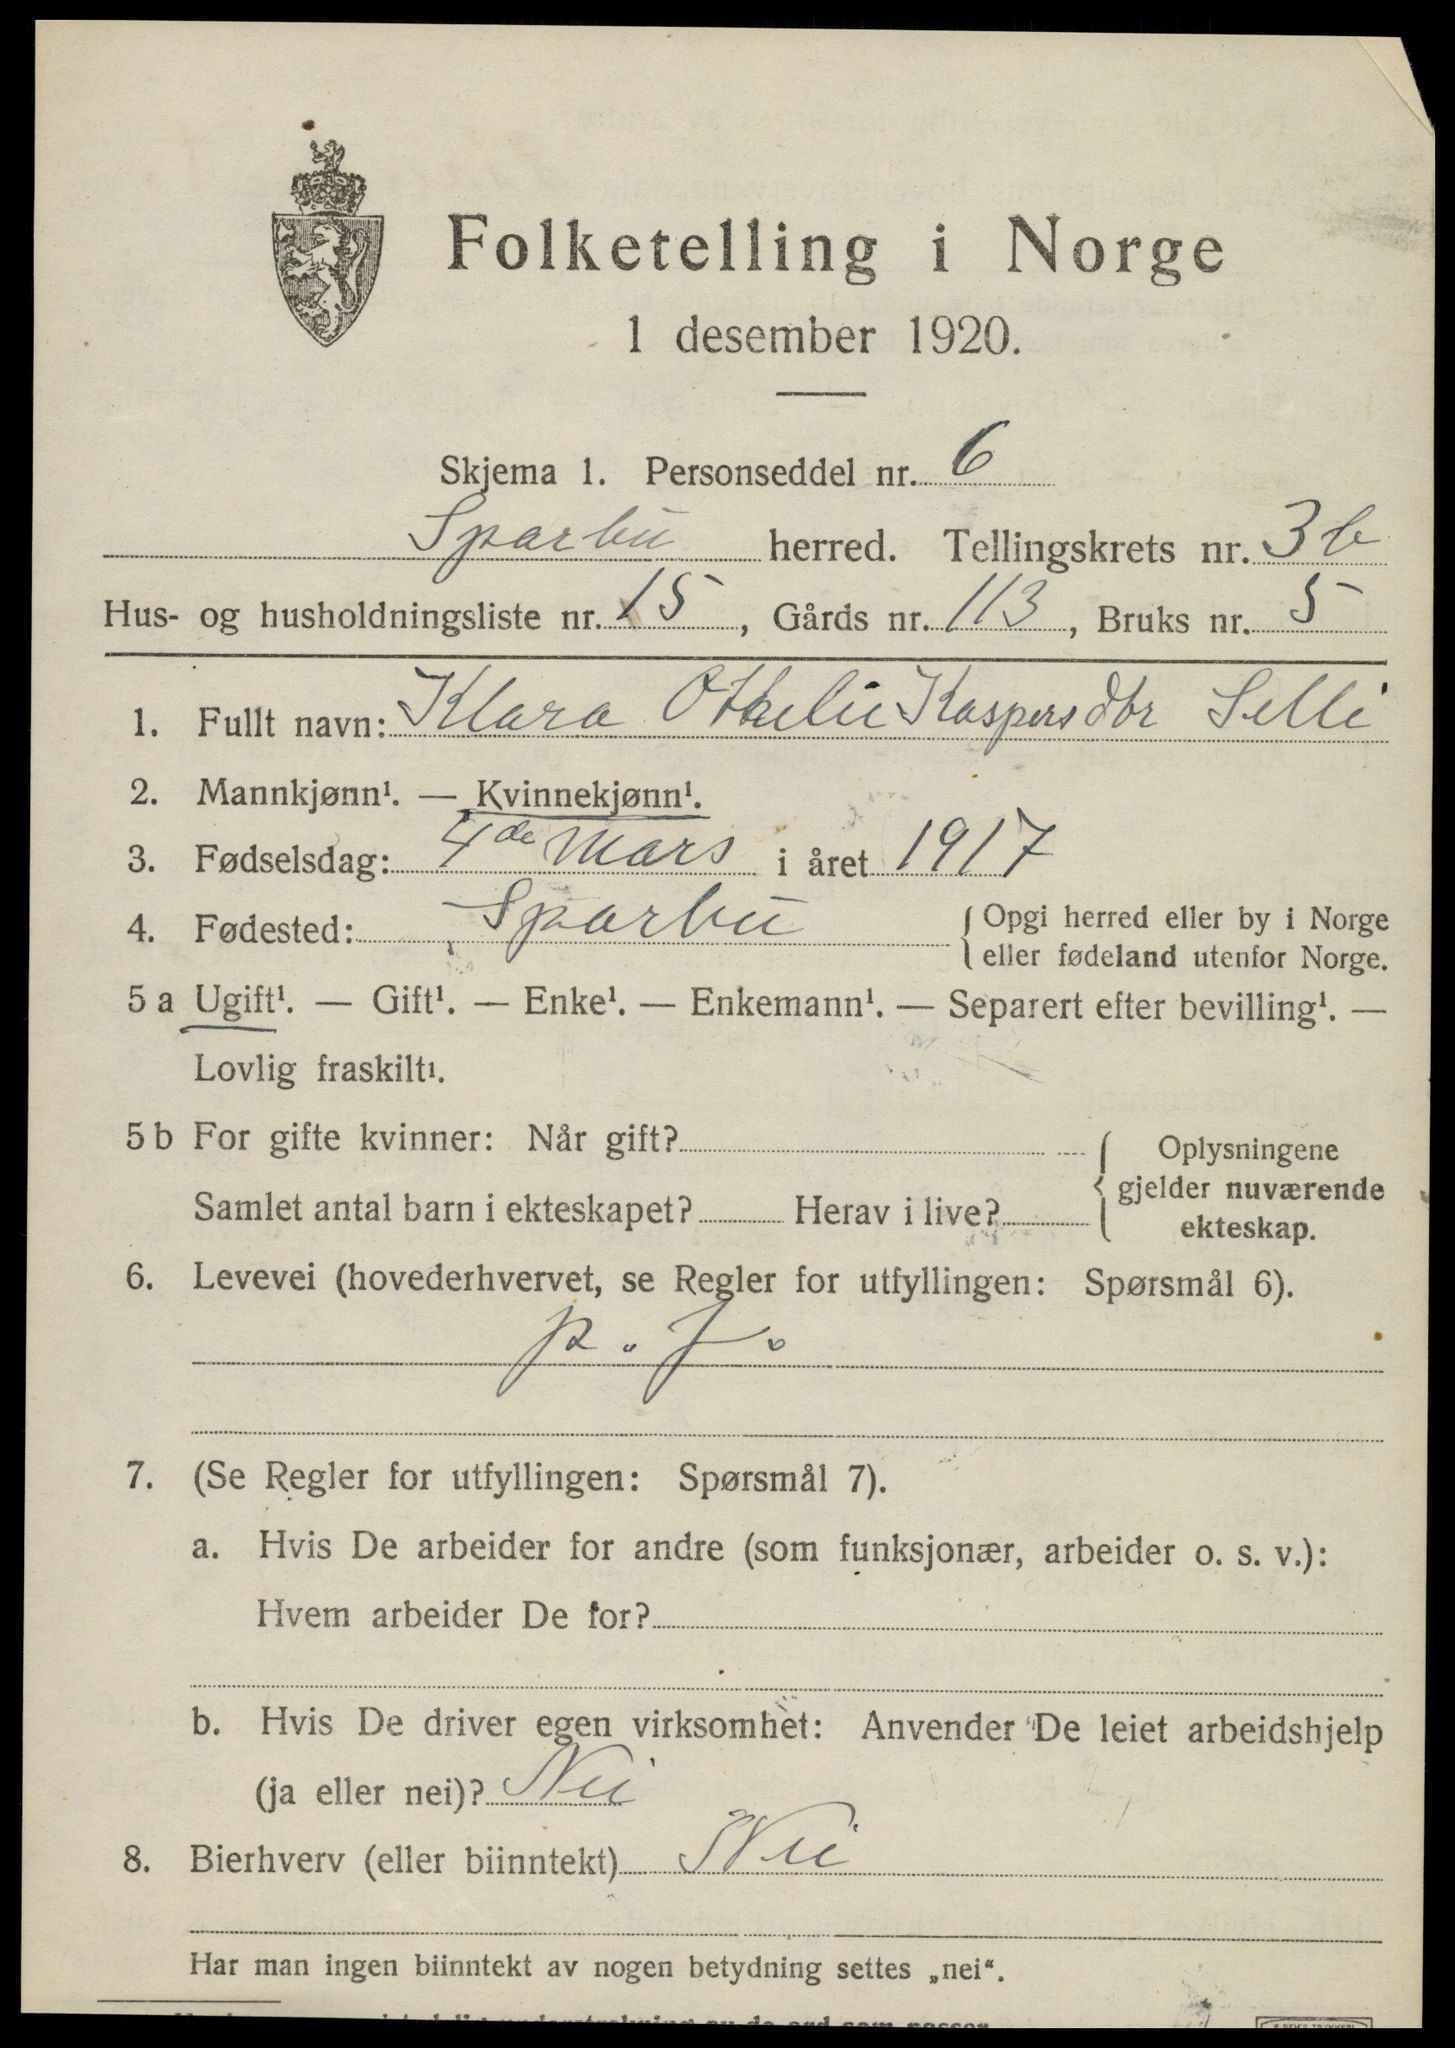 Folketelling i Norge
1 desember 1920.
Skjema 1. Personseddel nr. 6
Sparbu herred. Tellingskrets nr. 3b
Hus- og husholdningsliste nr. 15, Gårds nr. 113, Bruks nr. 5
1. Fullt navn: Klara Othelie Kaspersdtr Selli
2. Mannkjønn¹. — Kvinnekjønn¹.
3. Fødselsdag: 4de Mars i året 1917
4. Fødested: Sparbu {Opgi herred eller by i Norge
eller fødeland utenfor Norge.
5 a Ugift¹. — Gift¹. — Enke¹. — Enkemann¹. — Separert efter bevilling¹. —
Lovlig fraskilt¹.
5 b For gifte kvinner: Når gift? { Oplysningene
gjelder nuværende
Samlet antal barn i ekteskapet? Herav i live?
ekteskap.
6. Levevei (hovederhvervet, se Regler for utfyllingen: Spørsmål 6).
p. f.
7. (Se Regler for utfyllingen: Spørsmål 7).
a. Hvis De arbeider for andre (som funksjonær, arbeider o. s. v.):
Hvem arbeider De for?
b. Hvis De driver egen virksomhet: Anvender De leiet arbeidshjelp
(ja eller nei)? Nei
8. Bierhverv (eller biinntekt) Nei
Har man ingen biinntekt av nogen betydning settes „nei“.